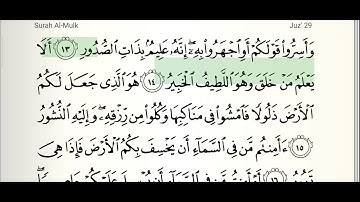 Surah Al-Mulk Juz' 29
وَأَسِرُّوا۟ قَوْلَكُمْ أَوِ ٱجْهَرُوا۟ بِهِۦٓ ۖ إِنَّهُۥ عَلِيمٌۢ بِذَاتِ ٱلصُّدُورِ ١٣ أَلَا
يَعْلَمُ مَنْ خَلَقَ وَهُوَ ٱللَّطِيفُ ٱلْخَبِيرُ ١٤ هُوَ ٱلَّذِى جَعَلَ لَكُمُ
ٱلْأَرْضَ ذَلُولًا فَٱمْشُوا۟ فِى مَنَاكِبِهَا وَكُلُوا۟ مِن رِّزْقِهِۦ ۖ وَإِلَيْهِ ٱلنُّشُورُ
١٥ ءَأَمِنتُم مَّن فِى ٱلسَّمَآءِ أَن يَخْسِفَ بِكُمُ ٱلْأَرْضَ فَإِذَا هِىَ
تَمُورُ ١٦ أَمْ أَمِنتُم مَّن فِى ٱلسَّمَآءِ أَن يُرْسِلَ عَلَيْكُمْ حَاصِبًا ۖ